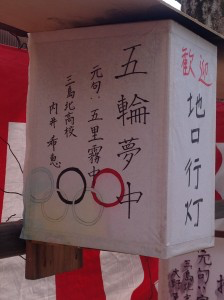 歓迎
地口行灯
五輪夢中
元句:五里霧中
三島北高校
内井希恵
元句